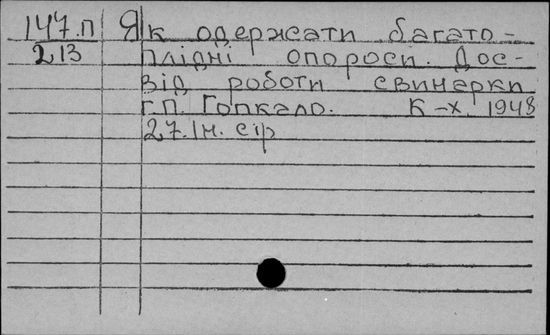 147.п Як одержати багато-
213 плідні опороси. Дос-
від роботи свинарки
Г.П. Гопкало. К-х. 1948
27.Ін. сір